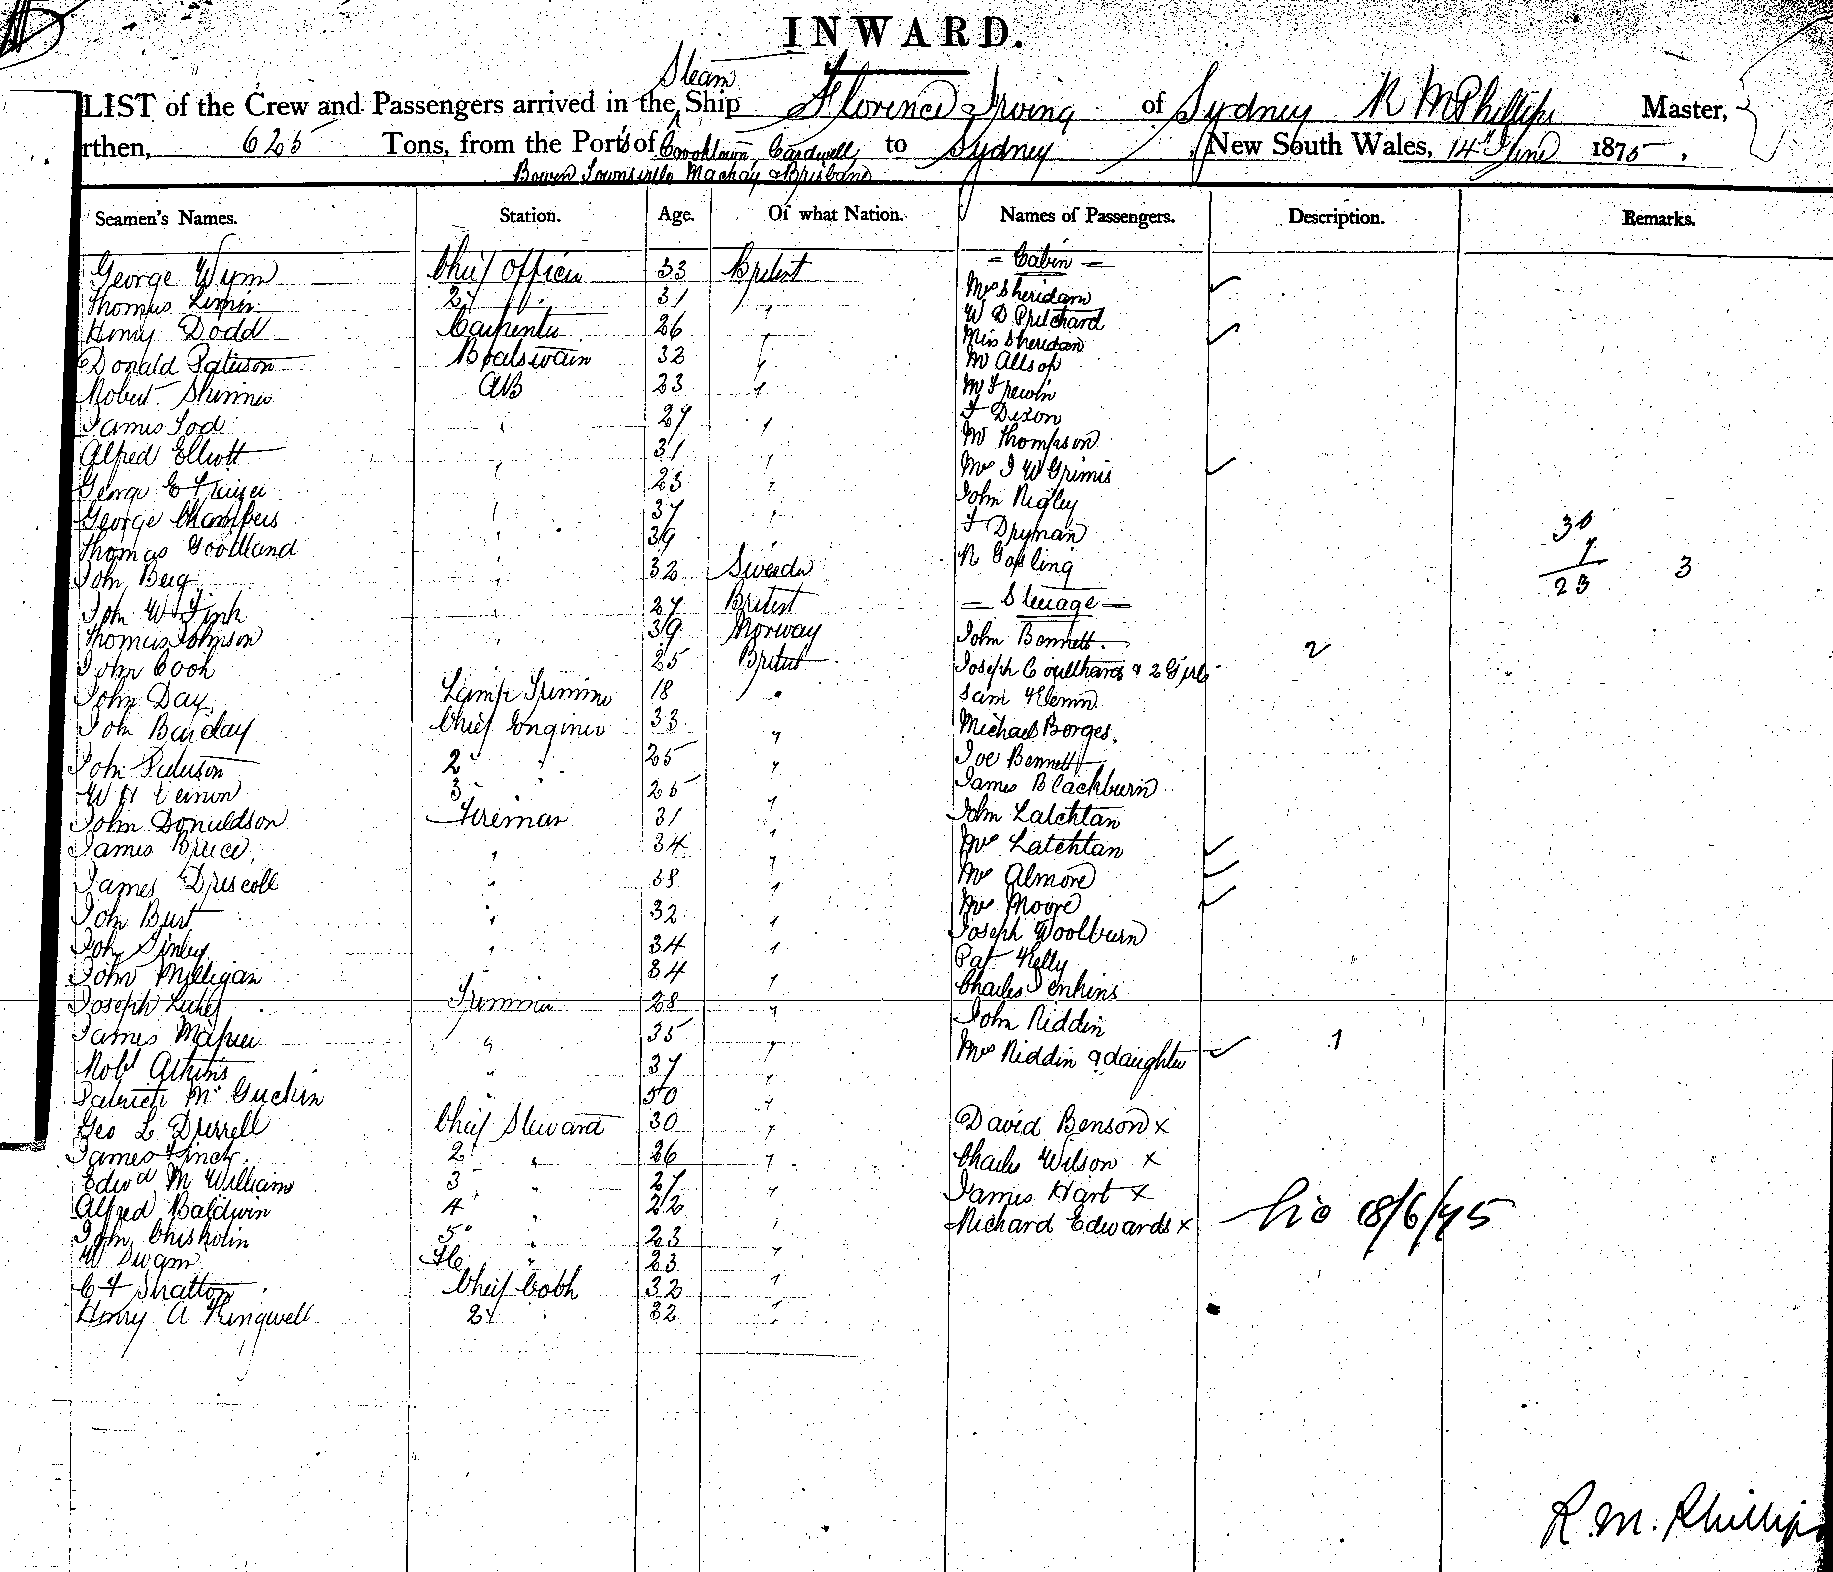 INWARD.
Steam
LIST of the Crew and Passengers arrived in the Ship Florence Irving of Sydney R M Phillips Master,
rthen, 625 Tons, from the Ports of Cooktown, Cardwell, to Sydney, New South Wales, 14th June 1875.
Bowen Townsville Mackay & Brisbane
Seamen's Names. Station. Age. Of what Nation. Names of Passengers. Description. Remarks.
— Cabin —
George Wynn Chief Officer 33 British
Thomas 2d " 31 " Mrs Sheridan
Henry Dodd Carpenter 26 " W D Pritchard
Donald Paterson Boatswain 32 " Miss Sheridan
Robert Skinner AB 23 " Mr Allsop
James Tod " 27 " Mr Trewin
Alfred Elliott 31 " F Dixon
George E Fraizer " 23 " Mr Thompson
George Chambers " 37 " Mrs J W Grimes
Thomas Goodland " 39 " John Rigley
John Berg " 32 Sweden F Dryman
R Gosling
30
7
23 3
John W Fink 27 British — Steerage —
Thomas Johnson " 39 Norway John Bennett
John Cook 25 British Joseph Coulthard & 2 Girls 2
John Day Lamp Trimmer 18 " Sam
John Barclay Chief Engineer 33 " Michael Borges.
John Paterson 2d " 25 " Joe Bennett
W H Vernon 3d 25 " James Blackburn
John Donaldson Fireman 31 " John Latchtan
James Bruce " 34 " Mrs Latchtan
James Driscoll " 38 " Mrs Almore
John Bust " 32 " Mrs Moore
John " 34 " Joseph Woolburn
John Milligan 34 " Pat Kelly
Joseph Trimmer 28 " Charles Jenkins
James " 35 " John Riddin
Robt Atkins " 37 " Mrs Riddin & daughter 1
Patrick McGuckin 50 "
Geo L Durrell Chief Steward 30 " David Benson x
James Finch 2d " 26 " Charles Wilson x
Edwd McWilliam 3 " 27 " James Hart x
Alfred Baldwin 4 " 22 " Richard Edwards x 18/6/75
John Chisholm 5 " 23 "
W Swam " 23 "
C F Stratton Chief Cook 32 "
Henry A Ringwell 2d " 32 "
R. M. Phillips